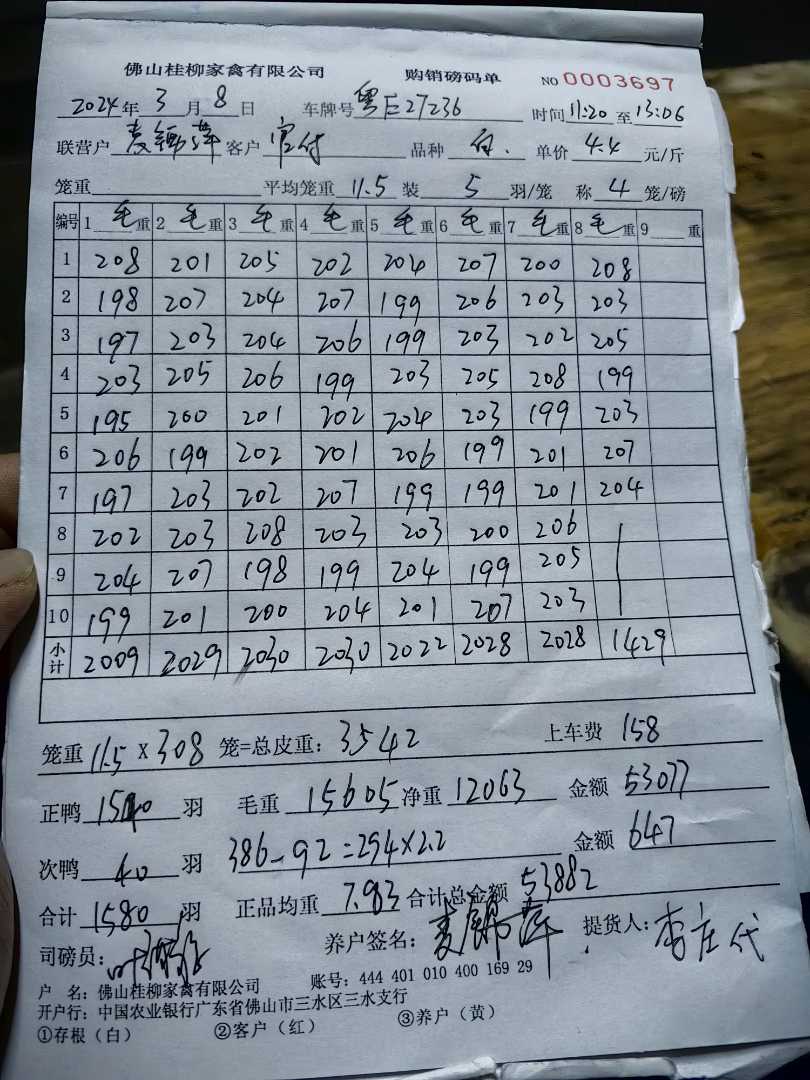 佛山桂柳家禽有限公司 购销磅码单 NO 0003697
2024年3月8日 车牌号 粤E27236 时间 11:20 至 13:06
联营户 麦锦萍 客户 官付 品种 白. 单价 4.4 元/斤
笼重 平均笼重 11.5 装 5 羽/笼 称 4 笼/磅
编号 1 毛重 2 毛重 3 毛重 4 毛重 5 毛重 6 毛重 7 毛重 8 毛重 9 重
1 208 201 205 202 204 207 200 208
2 198 207 204 207 199 206 203 203
3 197 203 204 206 199 203 202 205
4 203 205 206 199 203 205 208 199
5 195 200 201 202 204 203 199 203
6 206 199 202 201 206 199 201 207
7 197 203 202 207 199 199 201 204
8 202 203 208 203 203 200 206
9 204 207 198 199 204 199 205
10 199 201 200 204 201 207 203
小计 2009 2029 2030 2030 2022 2028 2028 1429
笼重 11.5 X 308 笼=总皮重: 3542 上车费 158
正鸭 1540 羽 毛重 15605 净重 12063 金额 53077
次鸭 40 羽 386-92=294×2.2 金额 647
合计 1580 羽 正品均重 7.83 合计总金额 53882
司磅员: 养户签名: 麦锦萍 提货人: 李庄代
户 名: 佛山桂柳家禽有限公司 账号: 444 401 010 400 169 29
开户行: 中国农业银行广东省佛山市三水区三水支行
①存根(白) ②客户(红) ③养户(黄)